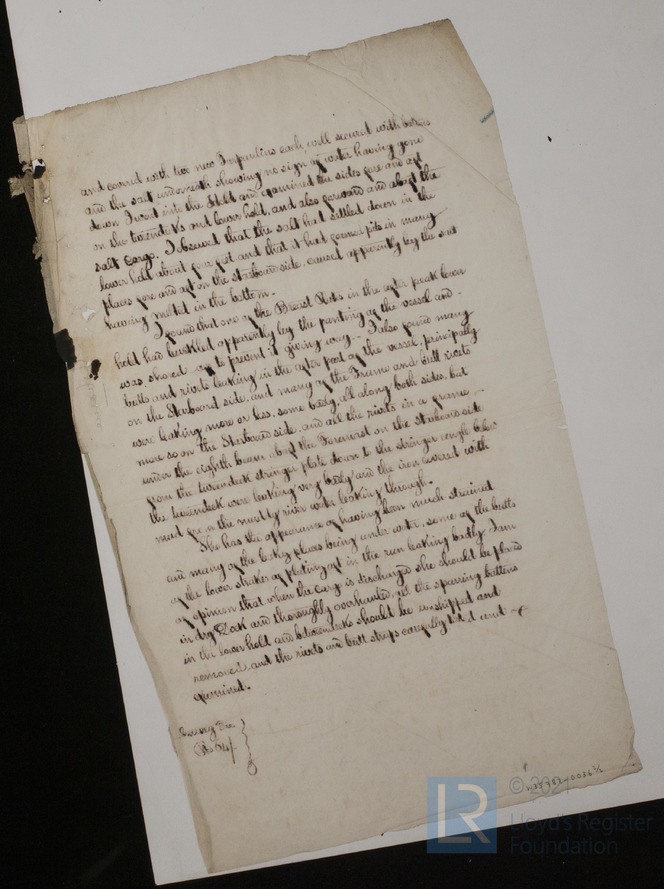 and covered with two new Tarpaulins each, well secured with battens
and the salt underneath showing no sign of water having gone
down. I went into the Hold and examined the sides fore and aft
on the tweendecks and lower hold, and also forward and abaft the
salt cargo. I observed that the salt had settled down in the
lower hold about four feet and that it had formed pits in many
places fore and aft on the Starboard side, caused apparently by the salt
having melted in the bottom.
I found that one of the Breast Hooks in the after peak lower
hold had buckled apparently by the panting of the vessel and
was shored to prevent it giving way. I also found many
butts and rivets leaking in the after part of the vessel, principally
on the Starboard side, and many of the Frame and butt rivets
were leaking more or less, some badly, all along both sides, but
more so on the Starboard side, and all the rivets in a frame
under the eighth beam abaft the Foremast on the starboard side
from the tweendeck stringer plate down to the stringer angle
the tweendeck were leaking very badly and the iron covered with
mud from the muddy river water leaking through.
She has the appearance of having been much strained
and many of the leaky places being under water, some of the butts
of the lower strakes of plating aft in the run leaking badly. I am
of opinion that when the cargo is discharged she should be placed
in dry Dock and thoroughly overhauled, all the sparring battens
in the lower hold and betweendecks should be unshipped and
removed, and the rivets and butt straps carefully tested and
examined.
Survey Fee
© 2021
LR
Lloyd's Register
Foundation